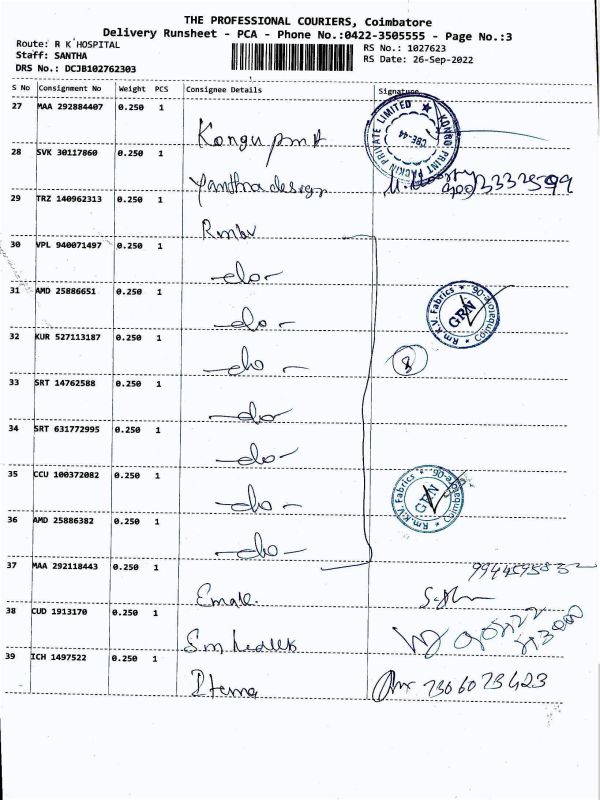 THE PROFESSIONAL COURIERS, Coimbatore
Delivery Runsheet - PCA - Phone No.:0422-3505555 - Page No.:3
Route: R K HOSPITAL
RS No.: 1027623
Staff: SANTHA
RS Date: 26-Sep-2022
DRS No.: DCJB102762303
S No Consignment No Weight PCS Consignee Details Signature
27 MAA 292884407 0.250 1
KONGO PRINT PACKIN PRIVATE LIMITED ★ CBE-44
28 SVK 30117860 0.250 1 design
29 TRZ 140962313 0.250 1
30 VPL 940071497 0.250 1 -do-
31 AMD 25886651 0.250 1 -do-
Rm.K.V. Fabrics * Coimbatore-06. * GRN
32 KUR 527113187 0.250 1 -do- 8
33 SRT 14762588 0.250 1 -do-
34 SRT 631772995 0.250 1 -do-
35 CCU 100372082 0.250 1 -do-
Rm.K.V. Fabrics * Coimbatore-06. * GRN
36 AMD 25886382 0.250 1 -do-
37 MAA 292118443 0.250 1
38 CUD 1913170 0.250 1
39 ICH 1497522 0.250 1 7306073423